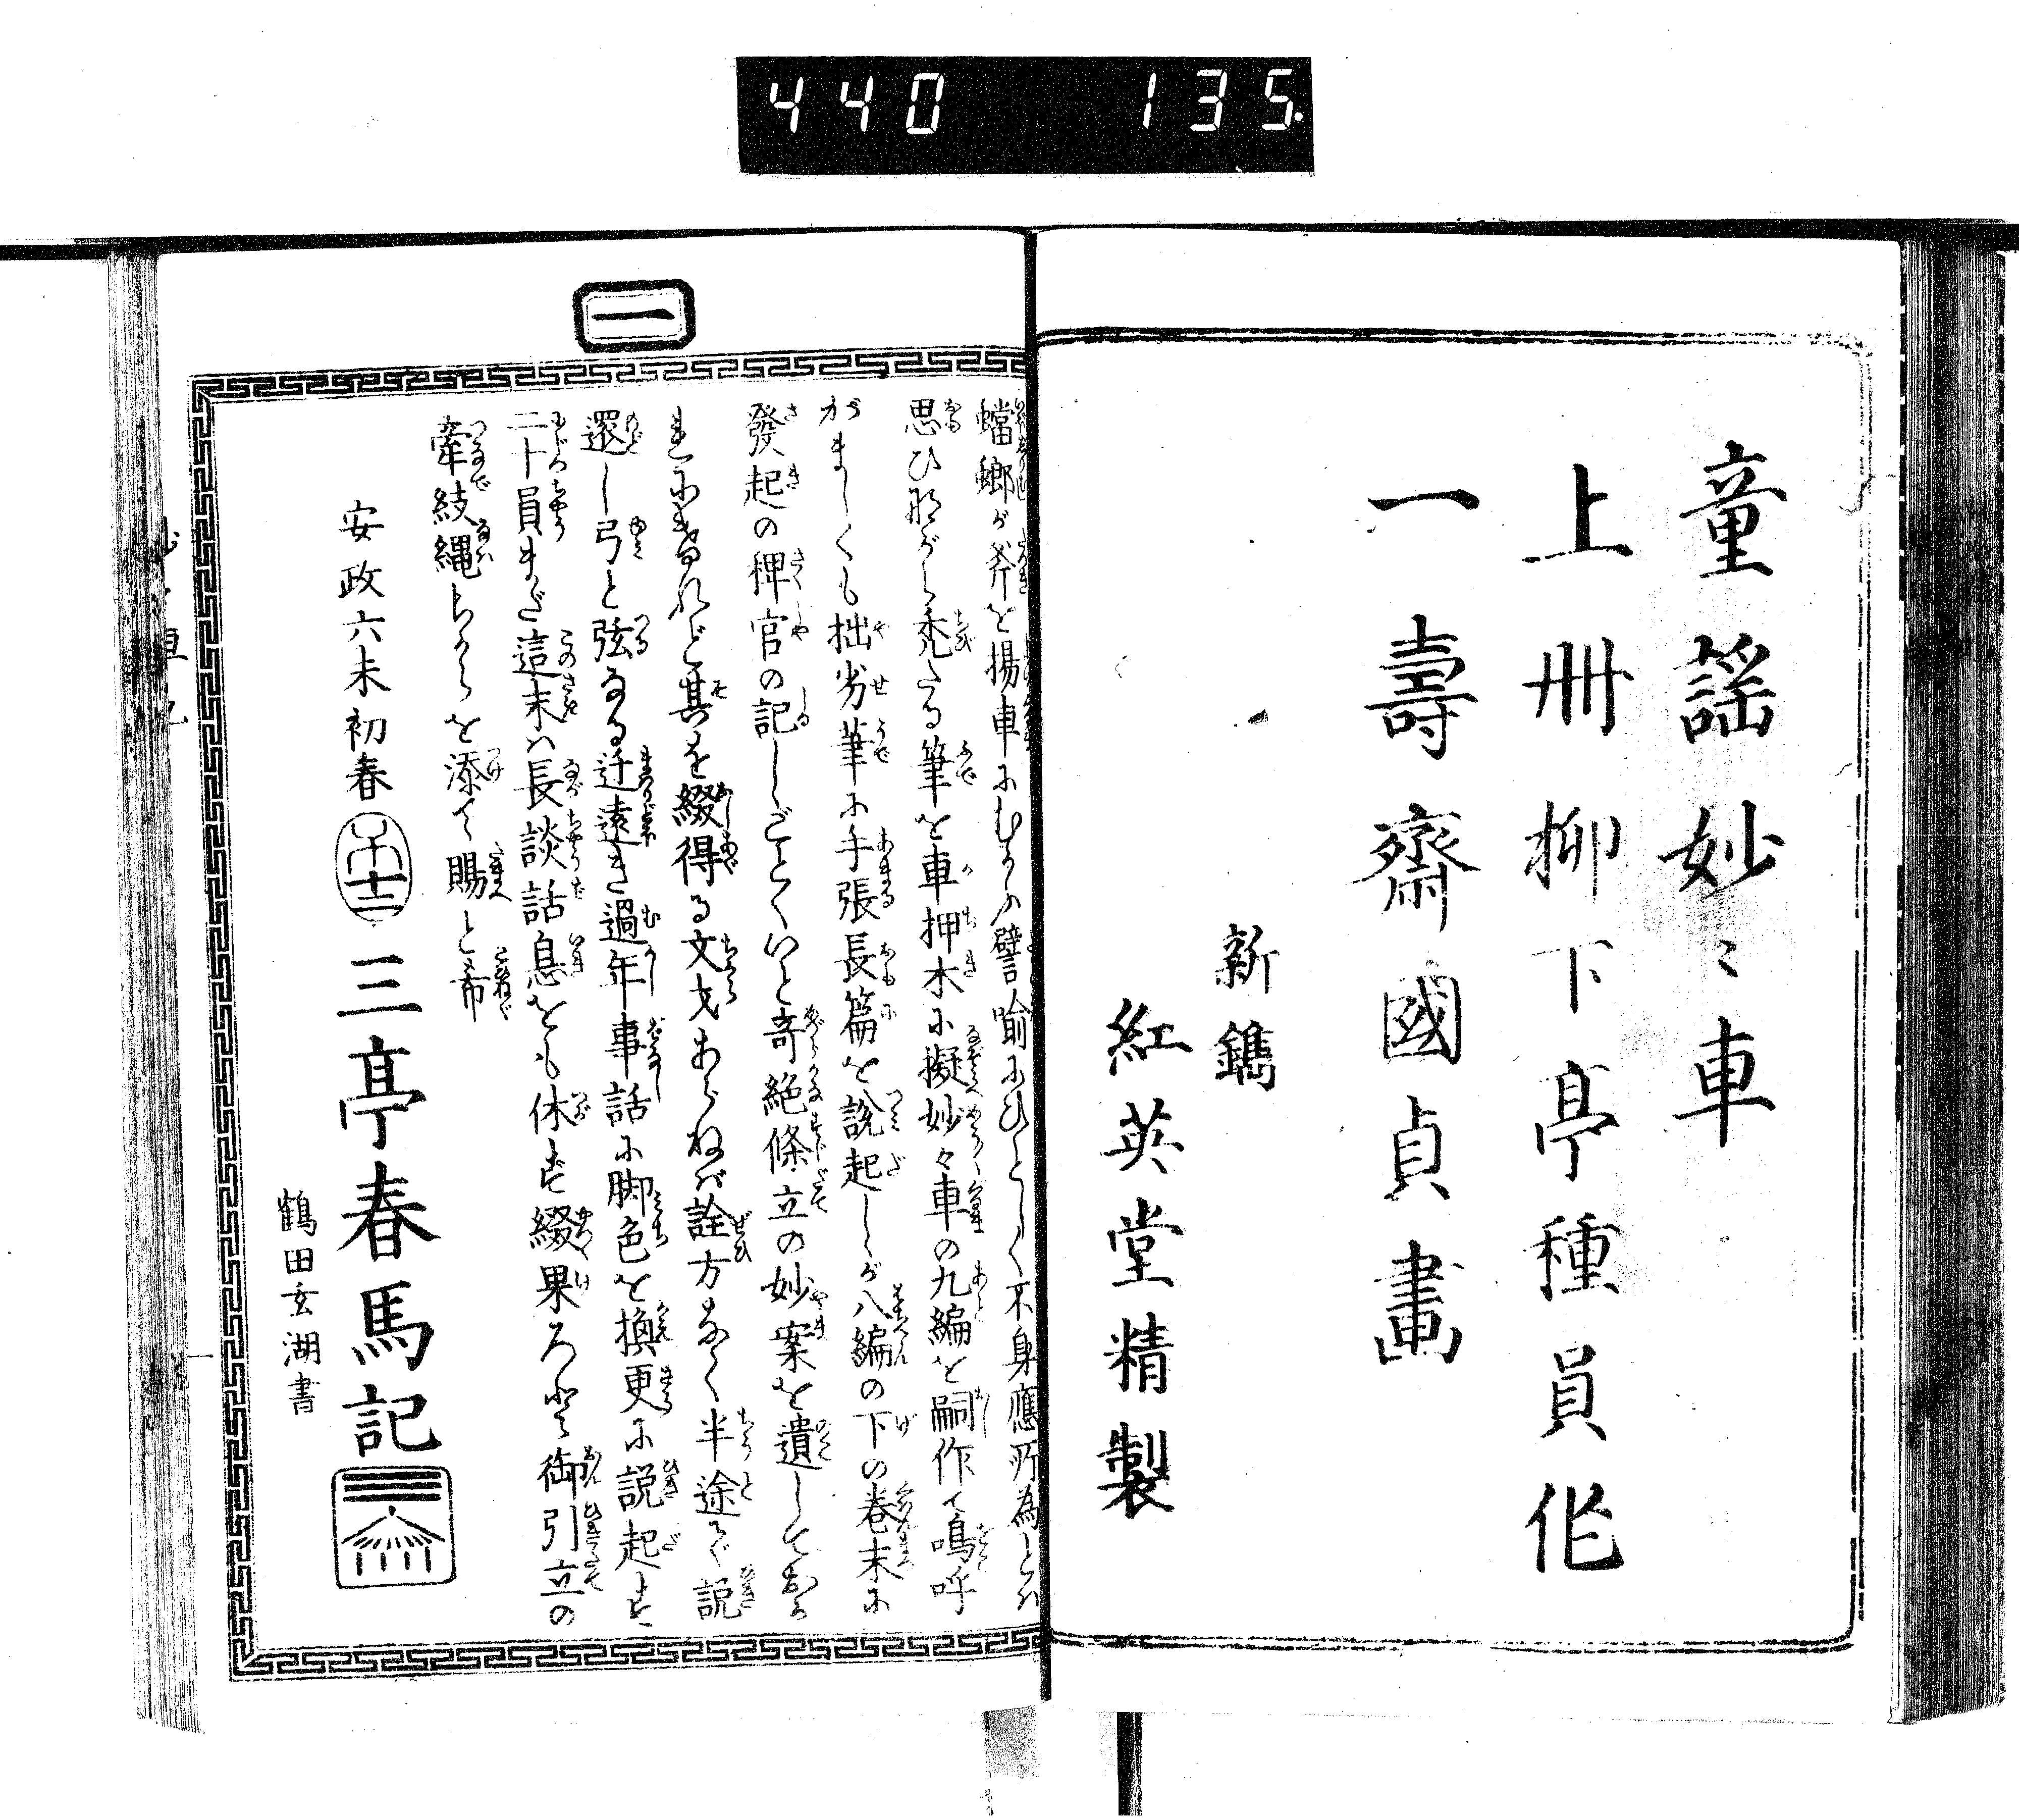 440 135.
童謡妙〻車
上册柳下亭種員作
一壽齋國貞畫
新鐫
紅英堂精製
一
蟷螂が斧を揚車にむかふ譬喩にひとしく不身應所為とハ
思ひ那がら禿たる筆を車押木に擬妙々車の九編を嗣作て嗚呼
がましくも拙劣筆に手張長篇を説起しゝが八編の下の巻末に
發起の稗官の記しゝごとくいと奇絶條立の妙案を遺してあか
れにきかれど其を綴得る文才あらねバ詮方なく半途で説
還し弓と弦なる迂遠き過年事話に脚色を換更に説起す
二十員まだ這末ハ長談話息をも休ず綴果ろと御引立の
牽紋縄ちからを添て賜と希
安政六未初春
三亭春馬記
鶴田玄湖書